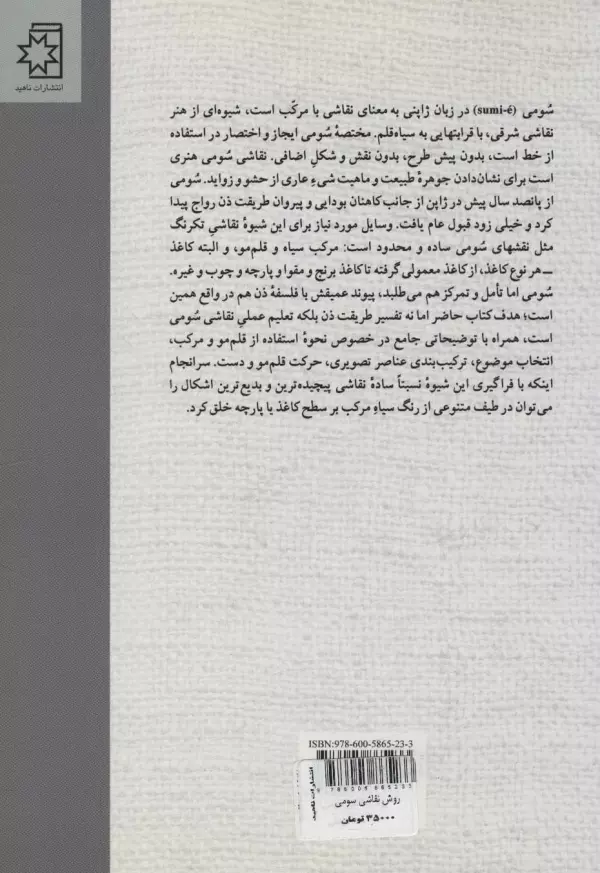 انتشارات ناهید
سُومی (sumi-é) در زبان ژاپنی به معنای نقاشی با مرکّب است، شیوه‌ای از هنر
نقاشی شرقی، با قرابتهایی به سیاه‌قلم. مختصهٔ سُومی ایجاز و اختصار در استفاده
از خط است، بدون پیش طرح، بدون نقش و شکلِ اضافی. نقاشی سُومی هنری
است برای نشان‌دادن جوهرهٔ طبیعت و ماهیت شیءِ عاری از حشو و زواید. سُومی
از پانصد سال پیش در ژاپن از جانب کاهنان بودایی و پیروان طریقت ذن رواج پیدا
کرد و خیلی زود قبول عام یافت. وسایل مورد نیاز برای این شیوهٔ نقاشیِ تکرنگ
مثل نقشهای سُومی ساده و محدود است: مرکب سیاه و قلم‌مو، و البته کاغذ
ـ هر نوع کاغذ، از کاغذ معمولی گرفته تا کاغذ برنج و مقوا و پارچه و چوب و غیره.
سُومی اما تأمل و تمرکز هم می‌طلبد، پیوند عمیقش با فلسفهٔ ذن هم در واقع همین
است؛ هدف کتاب حاضر اما نه تفسیر طریقت ذن بلکه تعلیم عملیِ نقاشی سُومی
است، همراه با توضیحاتی جامع در خصوص نحوهٔ استفاده از قلم‌مو و مرکب،
انتخاب موضوع، ترکیب‌بندی عناصر تصویری، حرکت قلم‌مو و دست. سرانجام
اینکه با فراگیری این شیوهٔ نسبتاً سادهٔ نقاشی پیچیده‌ترین و بدیع‌ترین اشکال را
می‌توان در طیف متنوعی از رنگ سیاهِ مرکب بر سطح کاغذ یا پارچه خلق کرد.
ISBN:978-600-5865-23-3
انتشارات ناهید
روش نقاشی سومی
۳۵۰۰۰ تومان